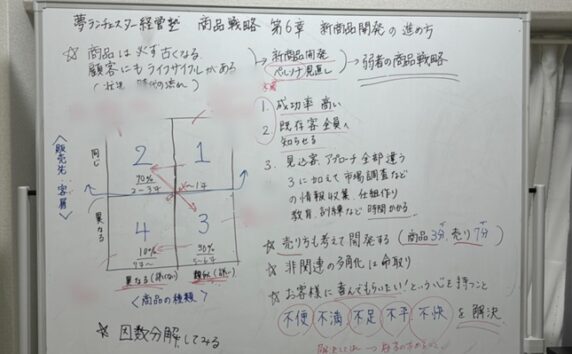 夢ランチェスター経営塾 商品戦略 第6章 新商品開発の進め方
☆ 商品は必ず古くなる
顧客にもライフサイクルがある
→ 新商品開発
ペルソナ見直し
→ 弱者の商品戦略
1. 成功率 高い
2. 既存客全員へ
知らせる
3. 見込客、アプローチ全部違う
3に加えて市場調査など
の情報収集、仕組作り
教育、訓練など時間かかる
〈販売先・客層〉
同じ
異なる
2
1
4
3
70%
10%
30%
異なる
類似
〈商品の種類〉
☆ 売り方も考えて開発する (商品3分、売り7分)
☆ 非関連の多角化は命取り
☆ お客様に喜んでもらいたい!という心を持つこと
不便 不満 不足 不平 不快 を解決
☆ 因数分解してみる